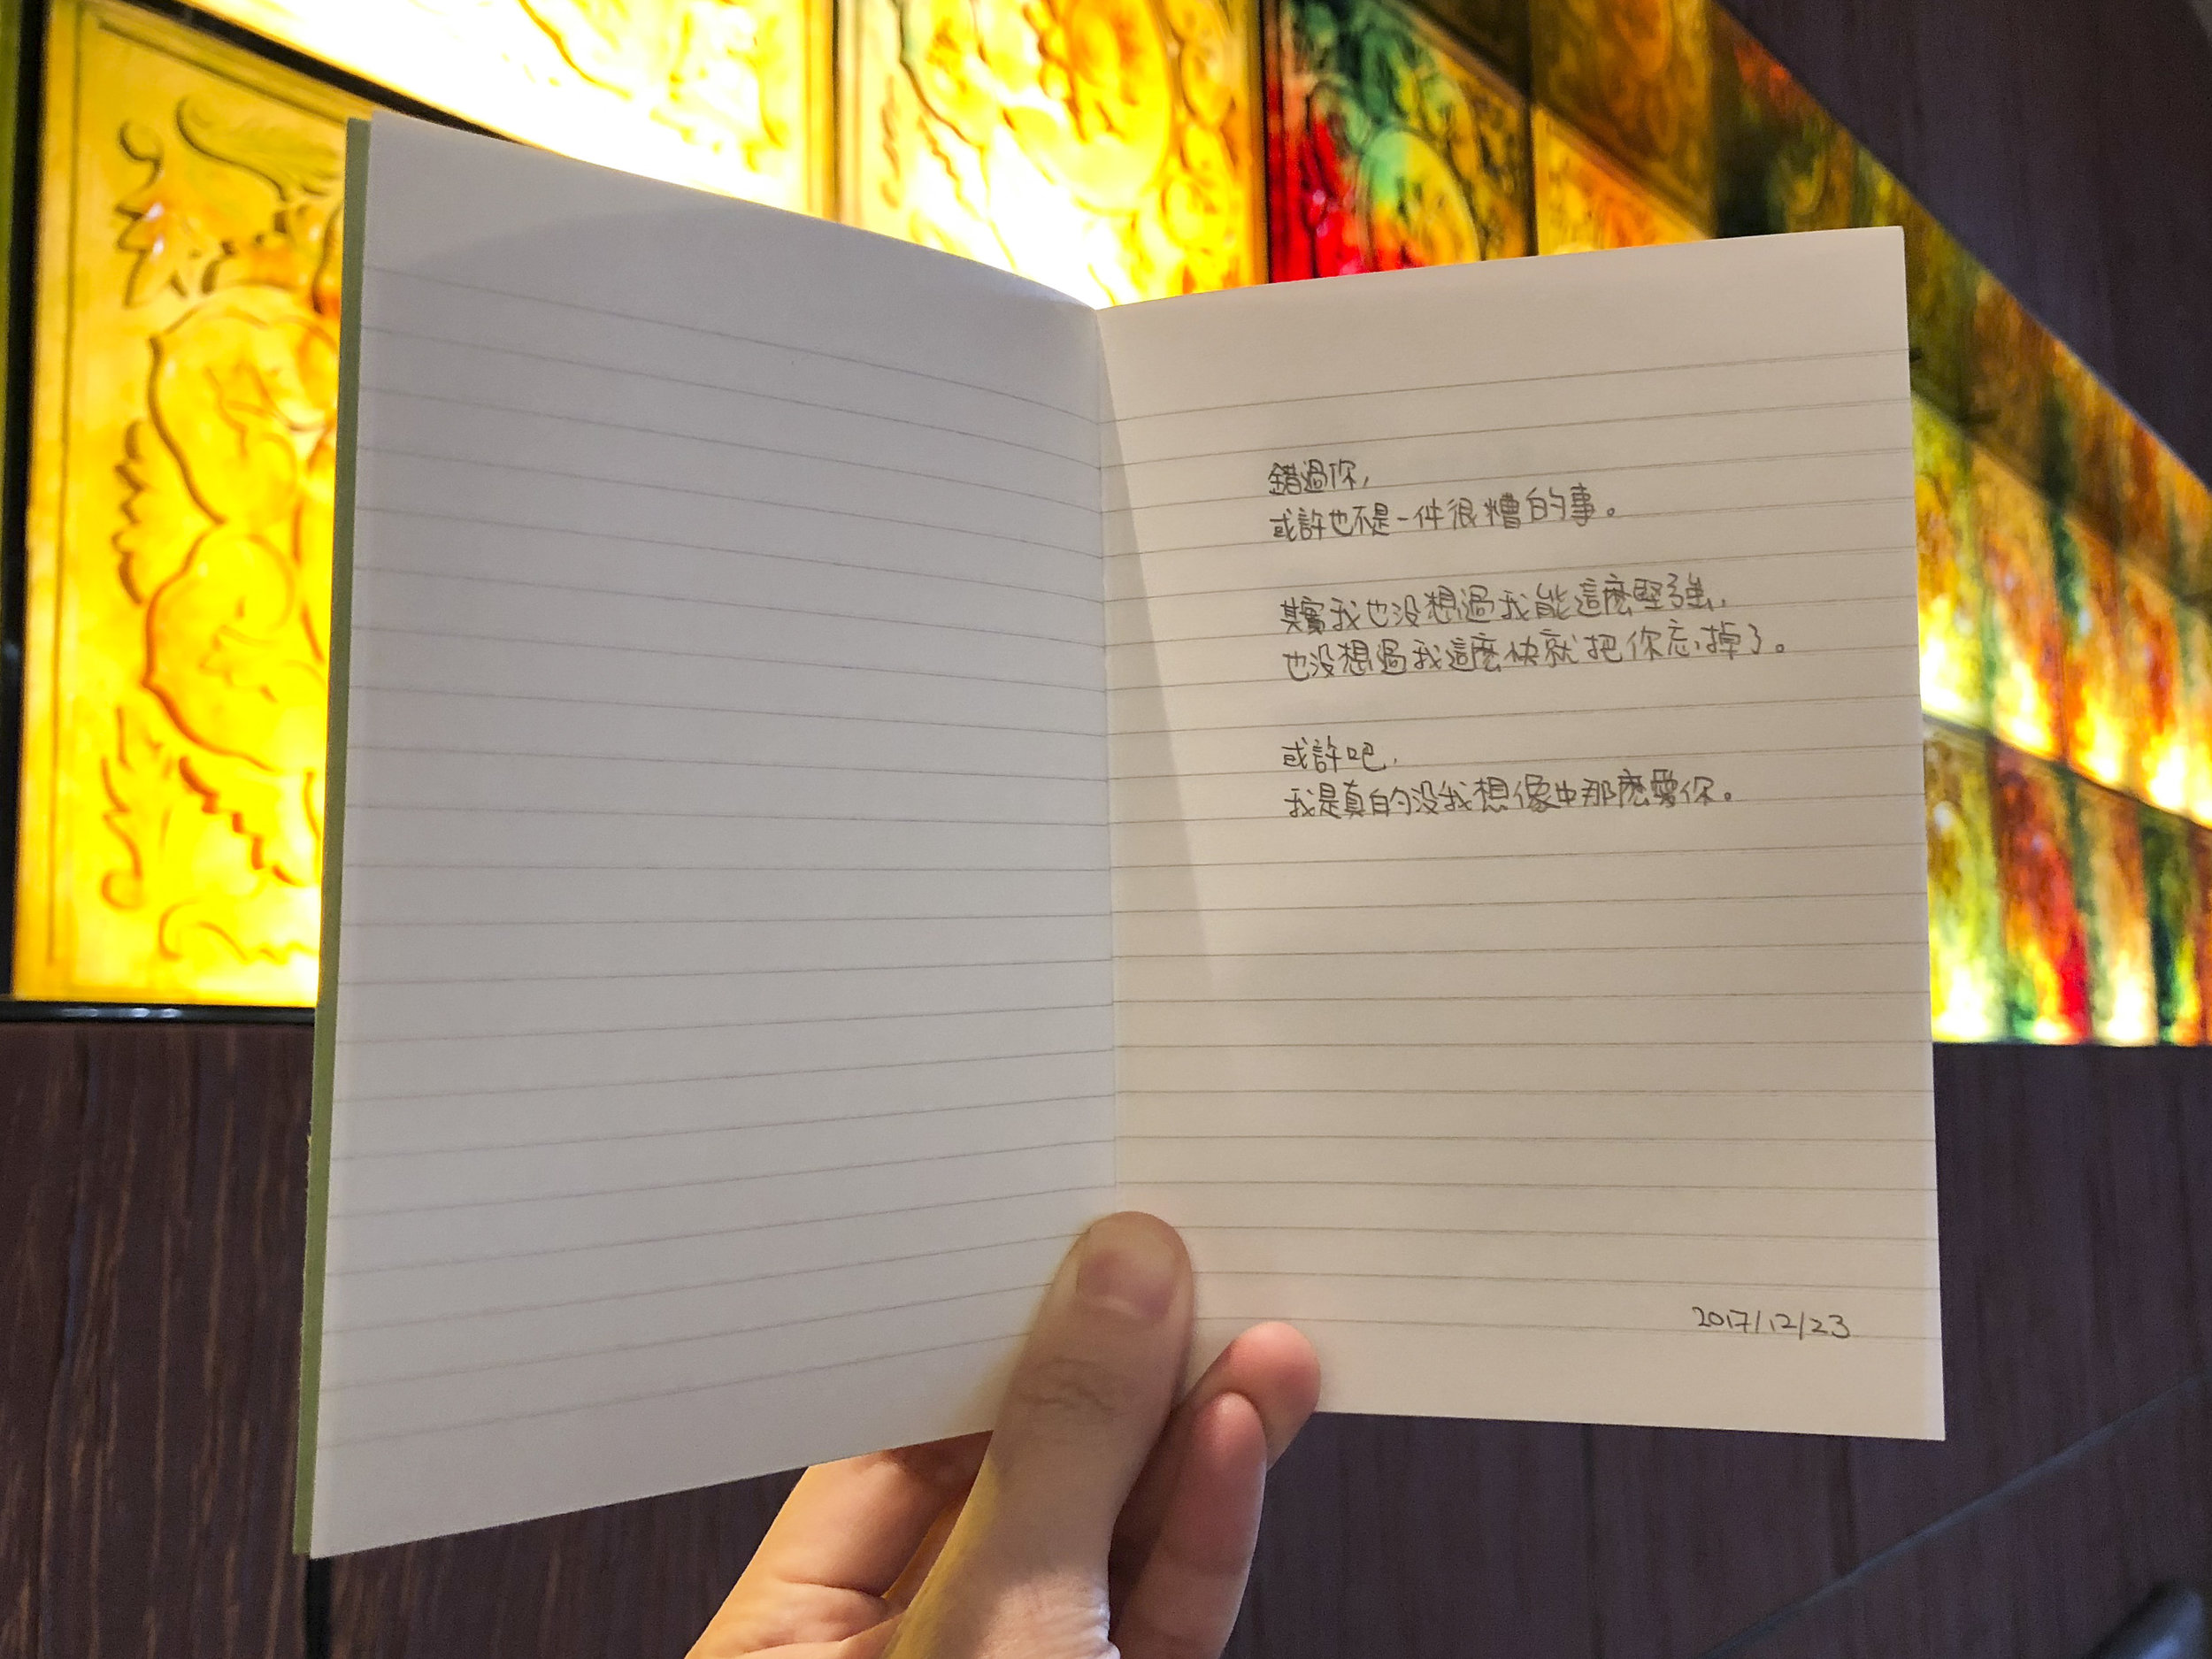 錯過你,
或許也不是一件很糟的事。
其實我也沒想過我能這麼堅強,
也沒想過我這麼快就把你忘掉了。
或許吧,
我是真的沒我想像中那麼愛你。
2017/12/23